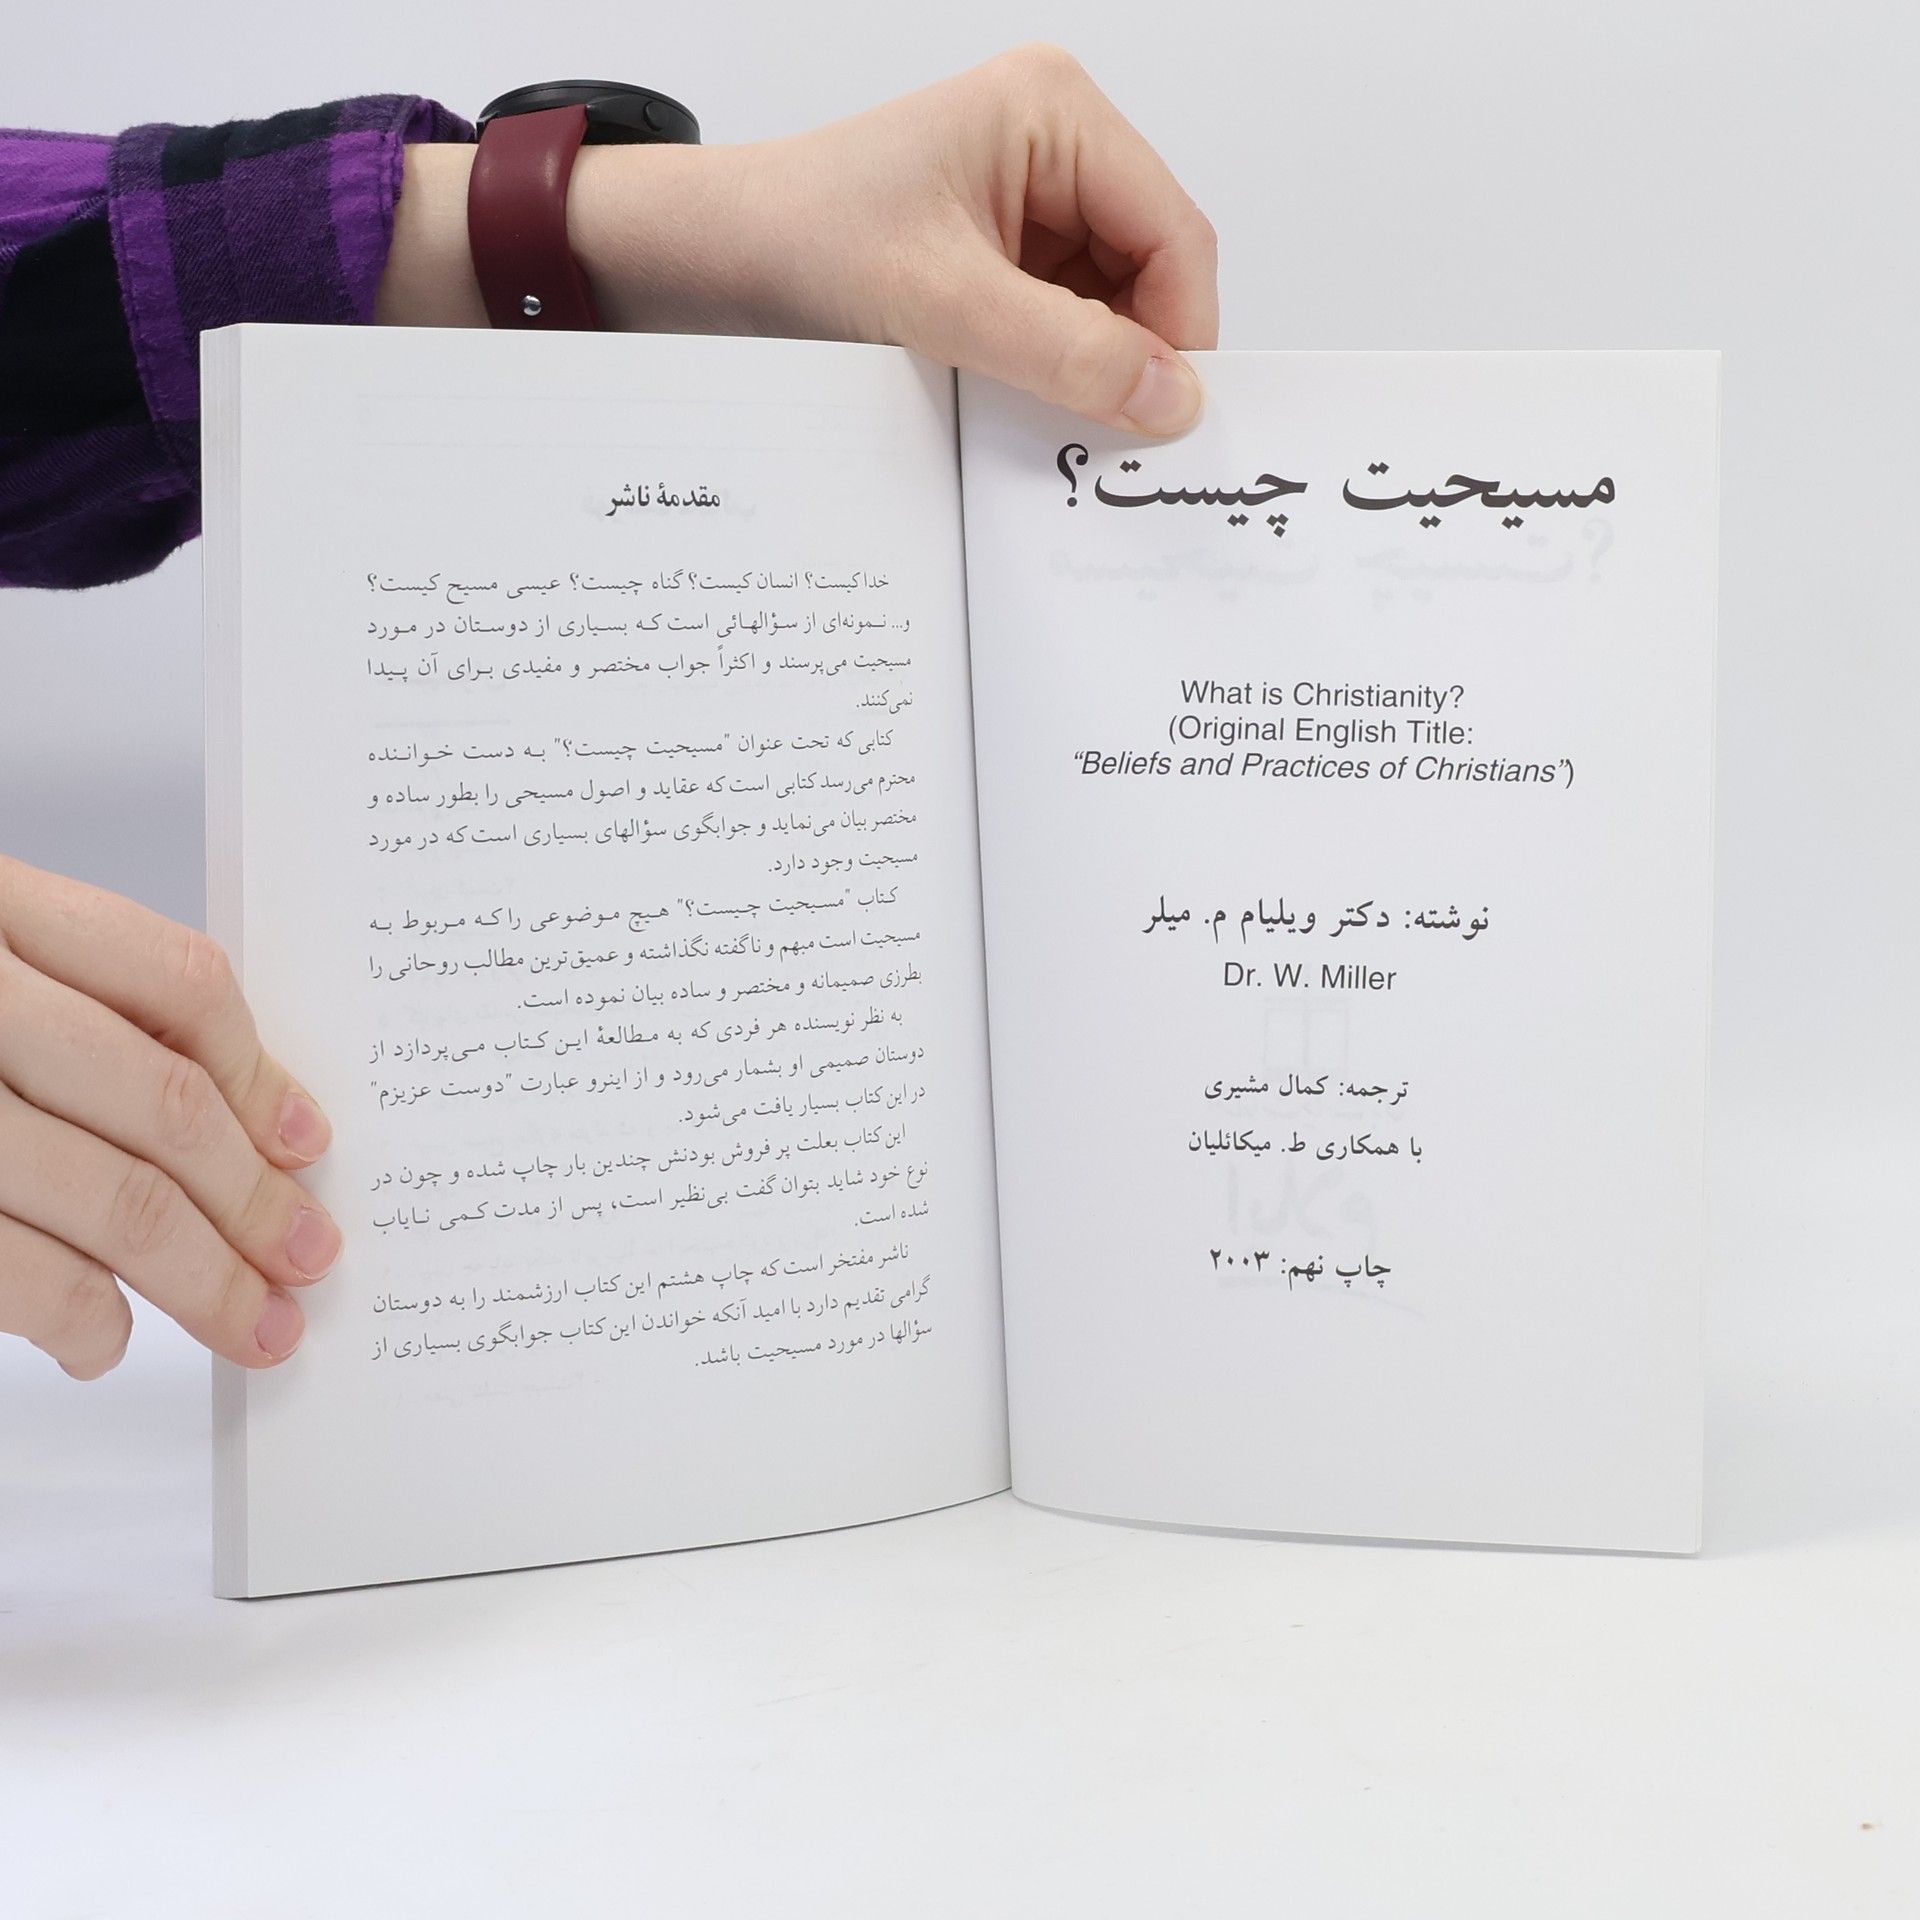 مسیحیت چیست؟
What is Christianity?
(Original English Title:
“Beliefs and Practices of Christians”)
نوشته: دکتر ویلیام م. میلر
Dr. W. Miller
ترجمه: کمال مشیری
با همکاری ط. میکائلیان
چاپ نهم: ۲۰۰۳
مقدمهٔ ناشر
خدا کیست؟ انسان کیست؟ گناه چیست؟ عیسی مسیح کیست؟
و... نمونه‌ای از سؤالهائی است که بسیاری از دوستان در مورد
مسیحیت می‌پرسند و اکثراً جواب مختصر و مفیدی برای آن پیدا
نمی‌کنند.
کتابی که تحت عنوان "مسیحیت چیست؟" به دست خواننده
محترم می‌رسد کتابی است که عقاید و اصول مسیحی را بطور ساده و
مختصر بیان می‌نماید و جوابگوی سؤالهای بسیاری است که در مورد
مسیحیت وجود دارد.
کتاب "مسیحیت چیست؟" هیچ موضوعی را که مربوط به
مسیحیت است مبهم و ناگفته نگذاشته و عمیق‌ترین مطالب روحانی را
بطرزی صمیمانه و مختصر و ساده بیان نموده است.
به نظر نویسنده هر فردی که به مطالعهٔ این کتاب می‌پردازد از
دوستان صمیمی او بشمار می‌رود و از اینرو عبارت "دوست عزیزم"
در این کتاب بسیار یافت می‌شود.
این کتاب بعلت پر فروش بودنش چندین بار چاپ شده و چون در
نوع خود شاید بتوان گفت بی‌نظیر است، پس از مدت کمی نایاب
شده است.
ناشر مفتخر است که چاپ هشتم این کتاب ارزشمند را به دوستان
گرامی تقدیم دارد با امید آنکه خواندن این کتاب جوابگوی بسیاری از
سؤالها در مورد مسیحیت باشد.